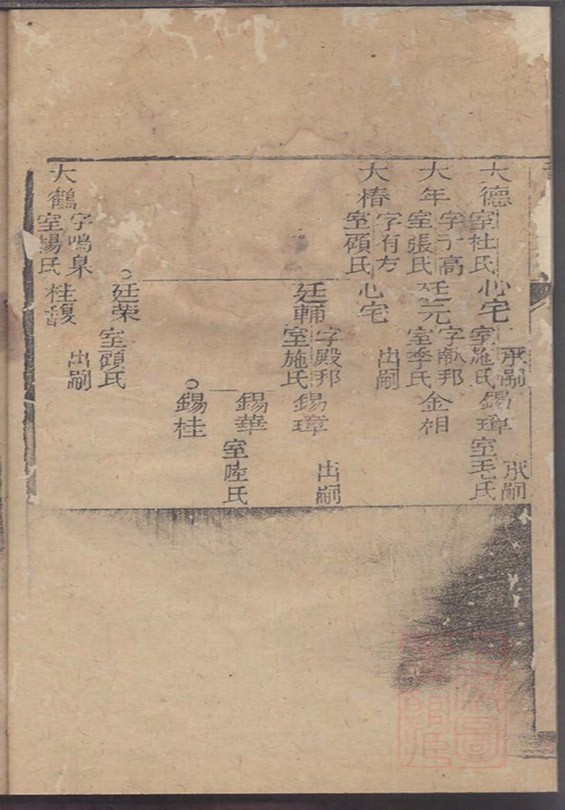 大德 室杜氏 心宅 承嗣 室施氏 錫璋 承嗣 室毛氏
大年 字于高 室張氏 廷元 字献邦 室李氏 金相
大椿 字有方 室頋氏 心宅 出嗣
廷輔 字殿邦 室施氏 錫璋 出嗣
錫華 室陸氏
錫桂
廷荣 室頋氏
大鶴 字鳴臯 室楊氏 桂馥 出嗣